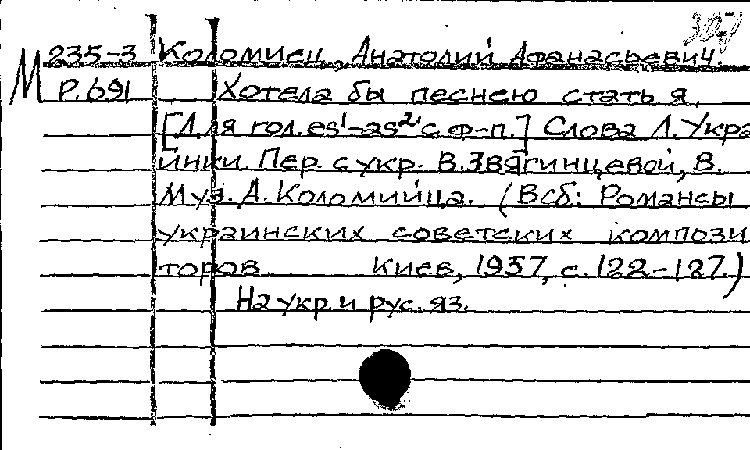 307
235-3 Коломиец, Анатолий Афанасьевич.
М Р.691 Хотела бы песнею стать я.
[Для гол. es¹-as² с ф-п.] Слова Л. Укра
инки. Пер. с укр. В. Звягинцевой, В.
Муз. А. Коломийца. (В сб: Романсы
украинских советских компози
торов Киев, 1957, с. 122-127.)
На укр. и рус. яз.